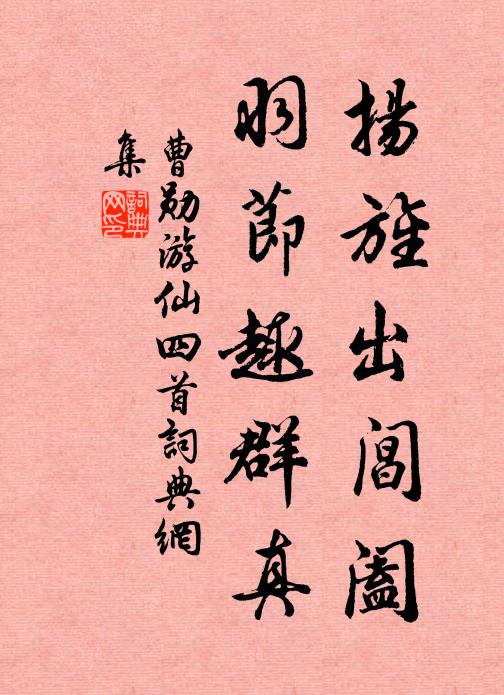 揚旌出閶闔
羽節趣群真
曹勛游仙四首詞典網
集
詞典
网印